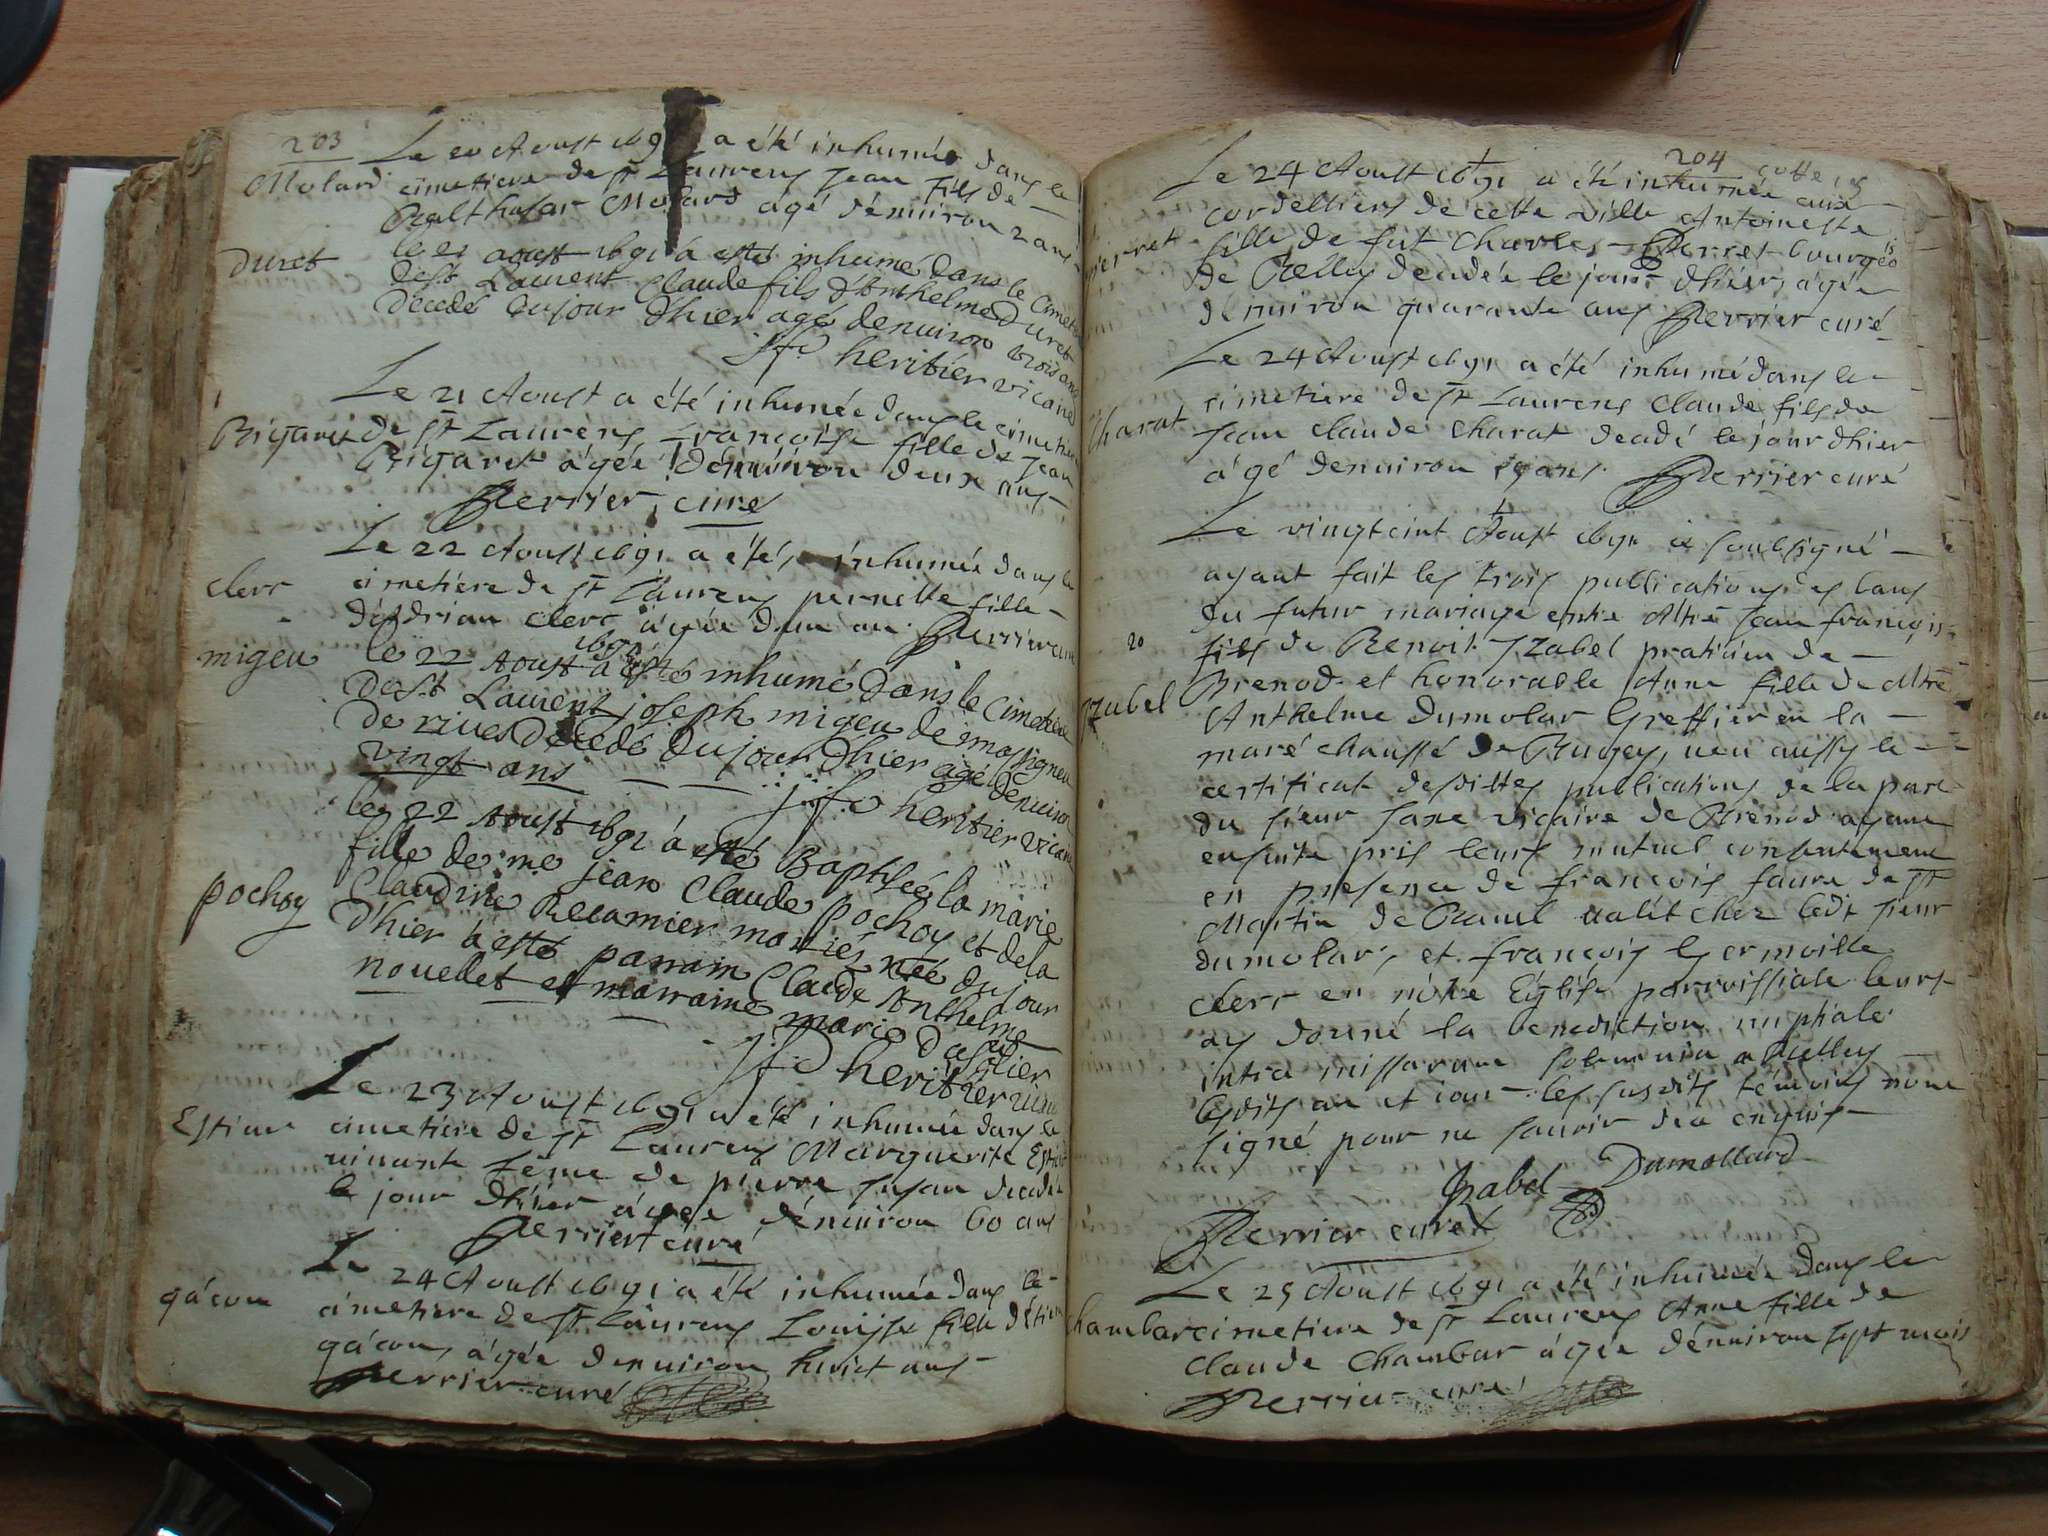 203
Molard
Le 20 Aoust 169 a été inhumé dans le
cimetiere de st Laurens Jean fils de
Balthasar Molard agé dénuiron 2 ans
Duret
le 21 aoust 1691 a esté inhumé dans le cimetiere
de st Laurent Claude fils d'Anthelme Duret
decedé du jour d'hier agé denuiron trois ans
heritier vicaire
Le 21 Aoust a été inhumée dans le cimetiere
Brigaret de st Laurens Françoise fille de Jean
Brigaret agée dénuiron deux ans
Perrier curé
Le 22 Aoust 1691 a été inhumée dans le
clerc cimetiere de st Laurens pernette fille
d'Adrian Clerc agée d'un an Perrier curé
migeu
le 22 Aoust 1691 a esté inhumé dans le cimetiere
de st Laurent joseph migeu de massigneu
de riues decedé du jour d'hier agé denuiron
vingt ans
heritier vicaire
le 22 Aoust 1691 à esté Baptisée la marie
fille de me jean Claude pochoy et de la
pochoy Claudine Recamier mariés née du jour
d'hier a esté parrain Claude Anthelme
nouellet et marraine marie
heritier vicaire
Le 23 Aoust 1691 a été inhumée dans le
Estiure cimetiere de st Laurens Marguerite
viuante féme de pierre decedée
le jour dhier agée dénuiron 60 ans
Perrier curé
Le 24 Aoust 1691 a été inhumée dans le
gácon cimetiere de st Laurens Louise fille d'
gácon, agée denuiron huict ans
Perrier curé
204
Le 24 Aoust 1691 a été inhumée aux
cordelliers de cette ville Antoinette
perret fille de fut Charles Perret bourgeois
de Belley decedée le jour dhier, agée
denuiron quarante ans Perrier curé
Le 24 Aoust 1691 a été inhumé dans le
cimetiere de st Laurens Claude fils de
Charat Jean Claude Charat decedé le jour dhier
ágé denuiron ans Perrier curé
Le vingtcint Aoust 1691 soubsigné
ayant fait les trois publications des bans
du futur mariage entre Mtre Jean françois
20
fils de Benoit Yzabel praticien de
Yzabel Brenod et honorable Anne fille de Mtre
Anthelme dumolar Greffier en la
maréchaussé de Bugey, ueu aussy le
certificat desdittes publications de la part
du sieur vicaire de Brenod ayant
ensuite pris leurs mutuel consentement
en presence de françois faure de st
Martin de ualet chez ledt sieur
dumolar, et françois Germoille
clerc en nótre Eglise parroissiale leurs
ay donné la benediction nuptiale
intra missarum solemnia a Belley
lesdits an et jour les susdits témoins nont
signé pour ne sauoir de enquis
Yzabel Dumollard
Perrier curé
Le 25 Aoust 1691 a été inhumée dans le
chambar cimetiere de st Laurens Anne fille de
Claude Chambar ágée dénuiron sept mois
Perrier curé